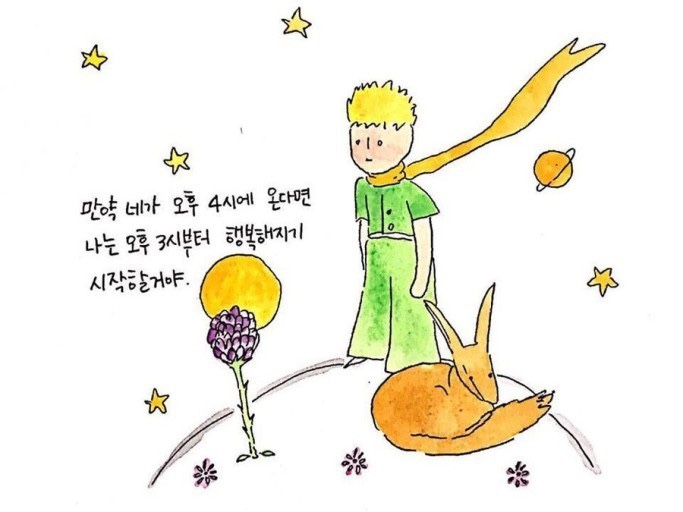 만약 네가 오후 4시에 온다면
나는 오후 3시부터 행복해지기
시작할거야.